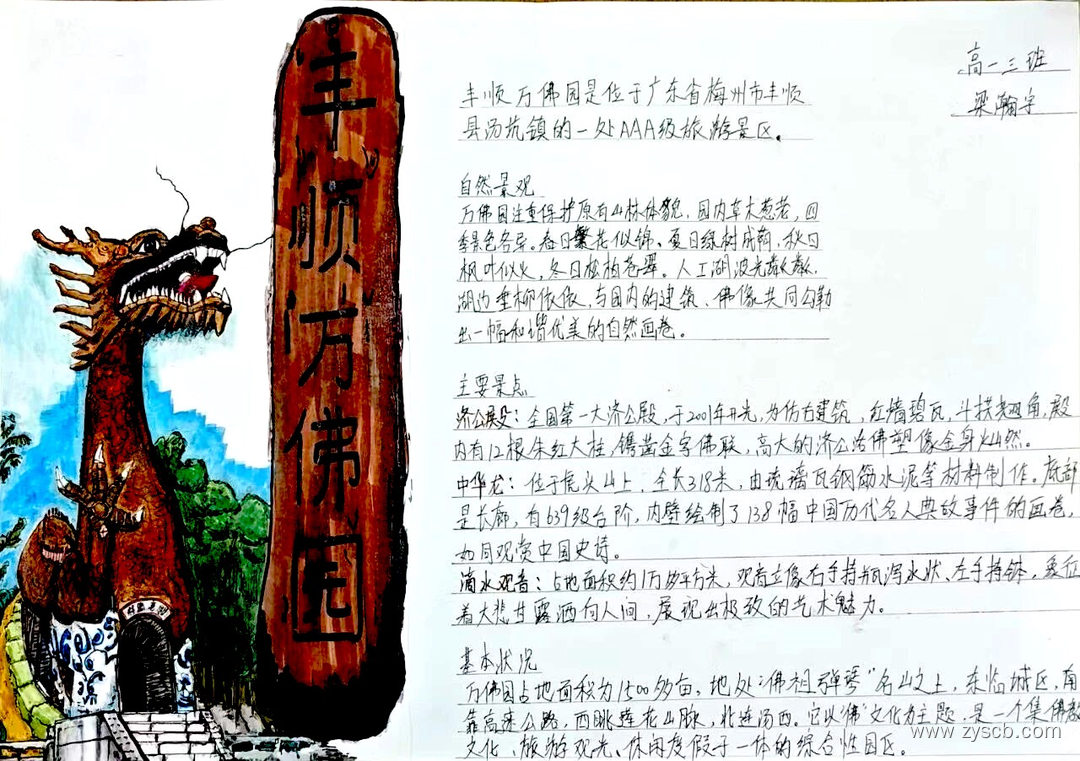 丰顺万佛园
高一三班
梁瀚宇
丰顺万佛园是位于广东省梅州市丰顺
县汤坑镇的一处AAA级旅游景区。
自然景观
万佛园注重保护原有山林体貌,园内草木葱茏,四
季景色各异。春日繁花似锦、夏日绿树成荫,秋日
枫叶似火,冬日松柏苍翠。人工湖波光粼粼,
湖边垂柳依依,与园内的建筑、佛像共同勾勒
出一幅和谐优美的自然画卷。
主要景点
济公殿:全国第一大济公殿,于2001年开光,为仿古建筑,红墙碧瓦,斗拱翘角,殿
内有12根朱红大柱,镌凿金字佛联,高大的济公活佛塑像金身灿然。
中华龙:位于虎头山上,全长318米,由琉璃瓦钢筋水泥等材料制作。底部
是长廊,有639级台阶,内壁绘制了138幅中国历代名人典故事件的画卷,
如同观赏中国史诗。
滴水观音:占地面积约1万多平方米,观音立像右手持瓶泻水状、左手持钵,象征
着大悲甘露洒向人间,展现出极致的艺术魅力。
基本状况
万佛园占地面积为1500多亩,地处“佛祖弹琴”名山之上,东临城区,南
靠高速公路,西眺莲花山脉,北连汤西。它以“佛”文化为主题,是一个集佛教
文化、旅游观光、休闲度假于一体的综合性园区。
www.zyscb.com